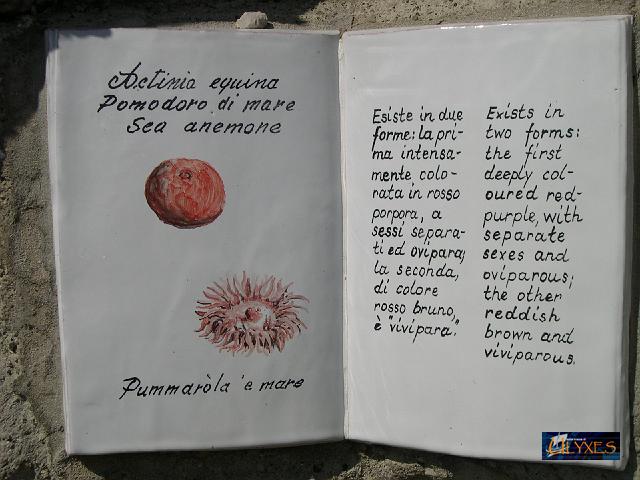 Actinia equina
Pomodoro di mare
Sea anemone
Pummaròla 'e mare
Esiste in due
forme: la pri-
ma intensa-
mente colo-
rata in rosso
porpora, a
sessi separa-
ti ed ovipara;
la seconda,
di colore
rosso bruno,
è "vivipara."
Exists in
two forms:
the first
deeply col-
oured red-
purple, with
separate
sexes and
oviparous;
the other
reddish
brown and
viviparous.
ULYXES